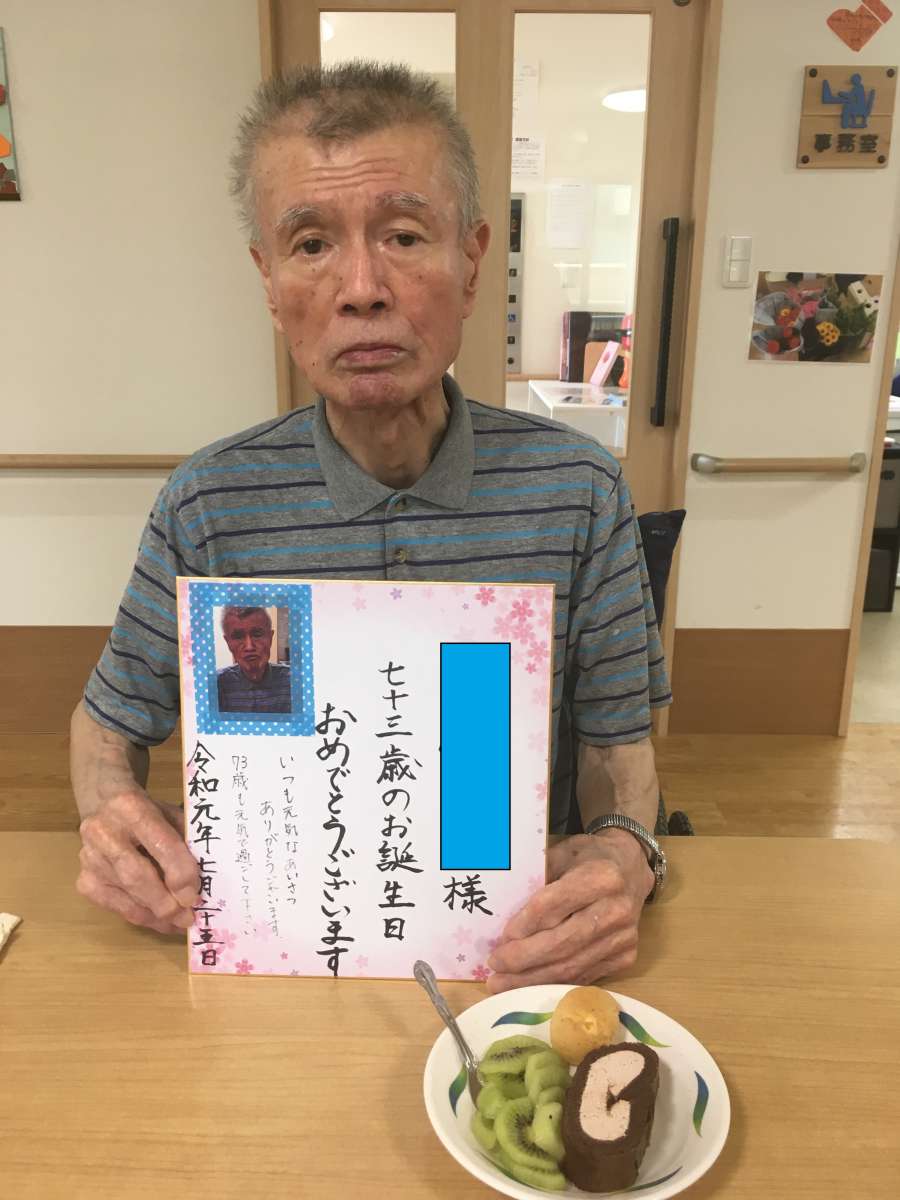 事務室
様
七十三歳のお誕生日
おめでとうございます
いつも元気なあいさつ
ありがとうございます。
73歳も元気で過ごして下さい
令和元年七月二十五日